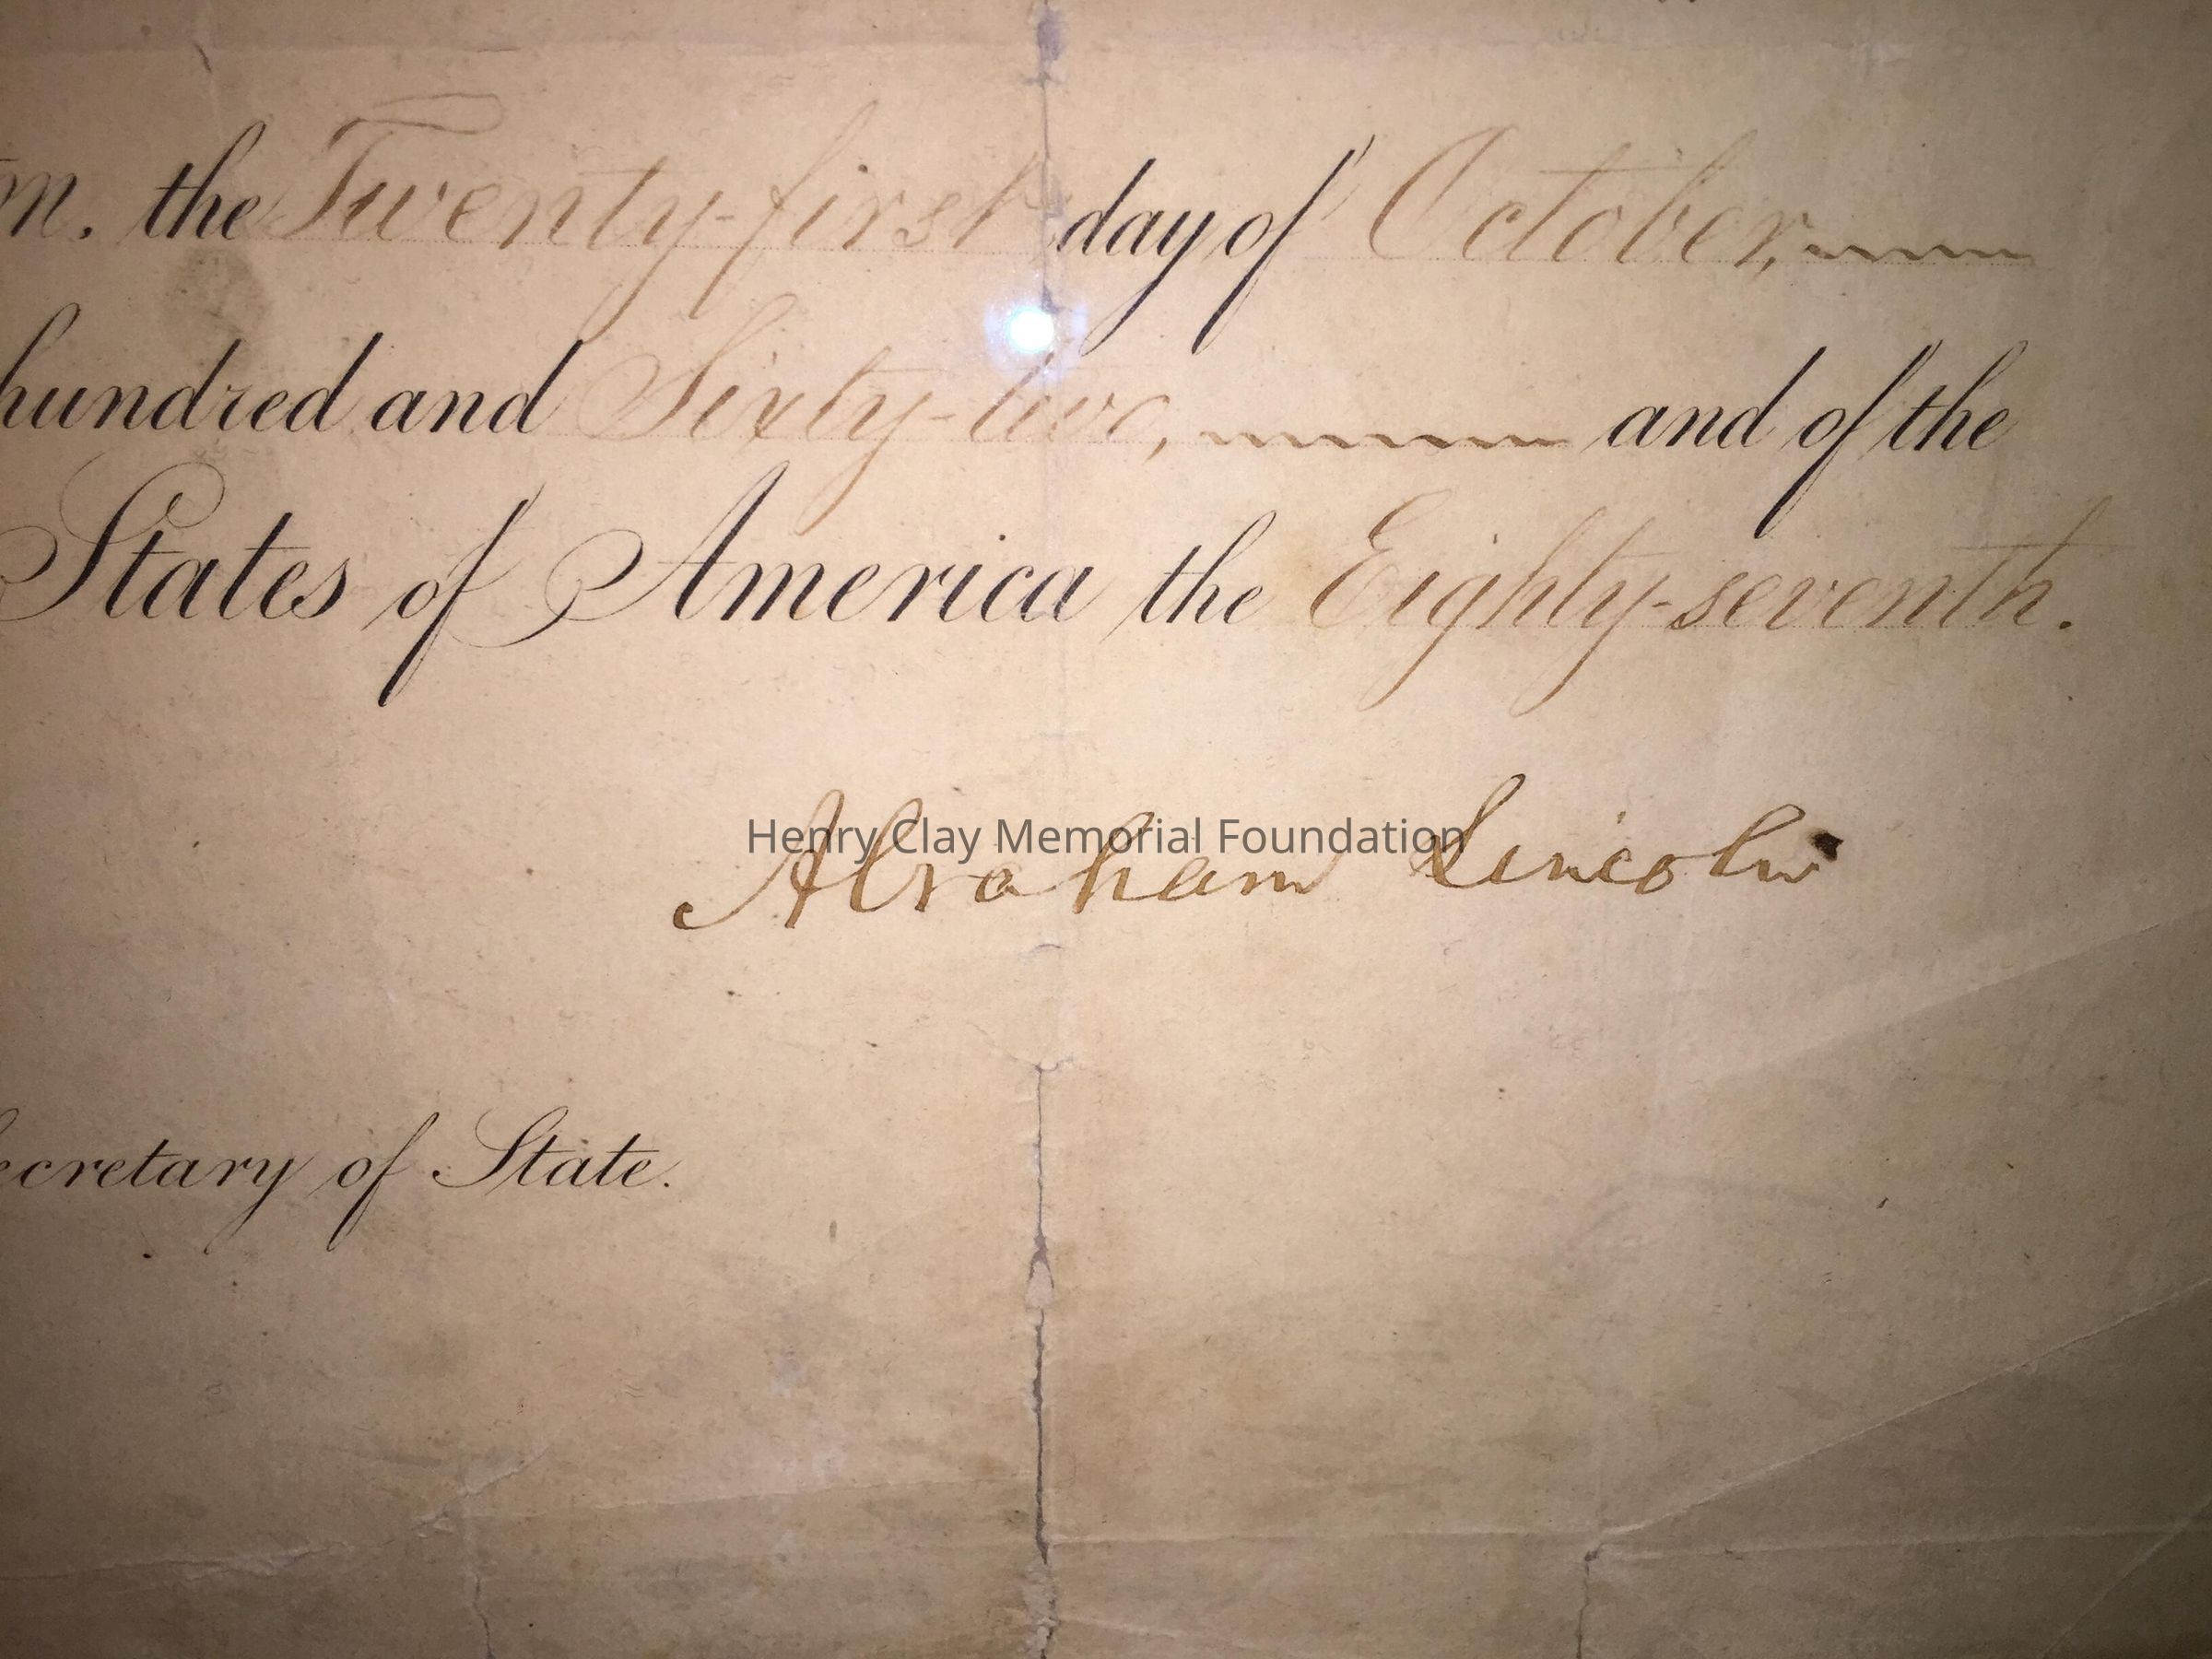 the Twenty-first day of October,
hundred and Sixty-two, and of the
States of America the Eighty-seventh.
Henry Clay Memorial Foundation
Abraham Lincoln
ecretary of State.